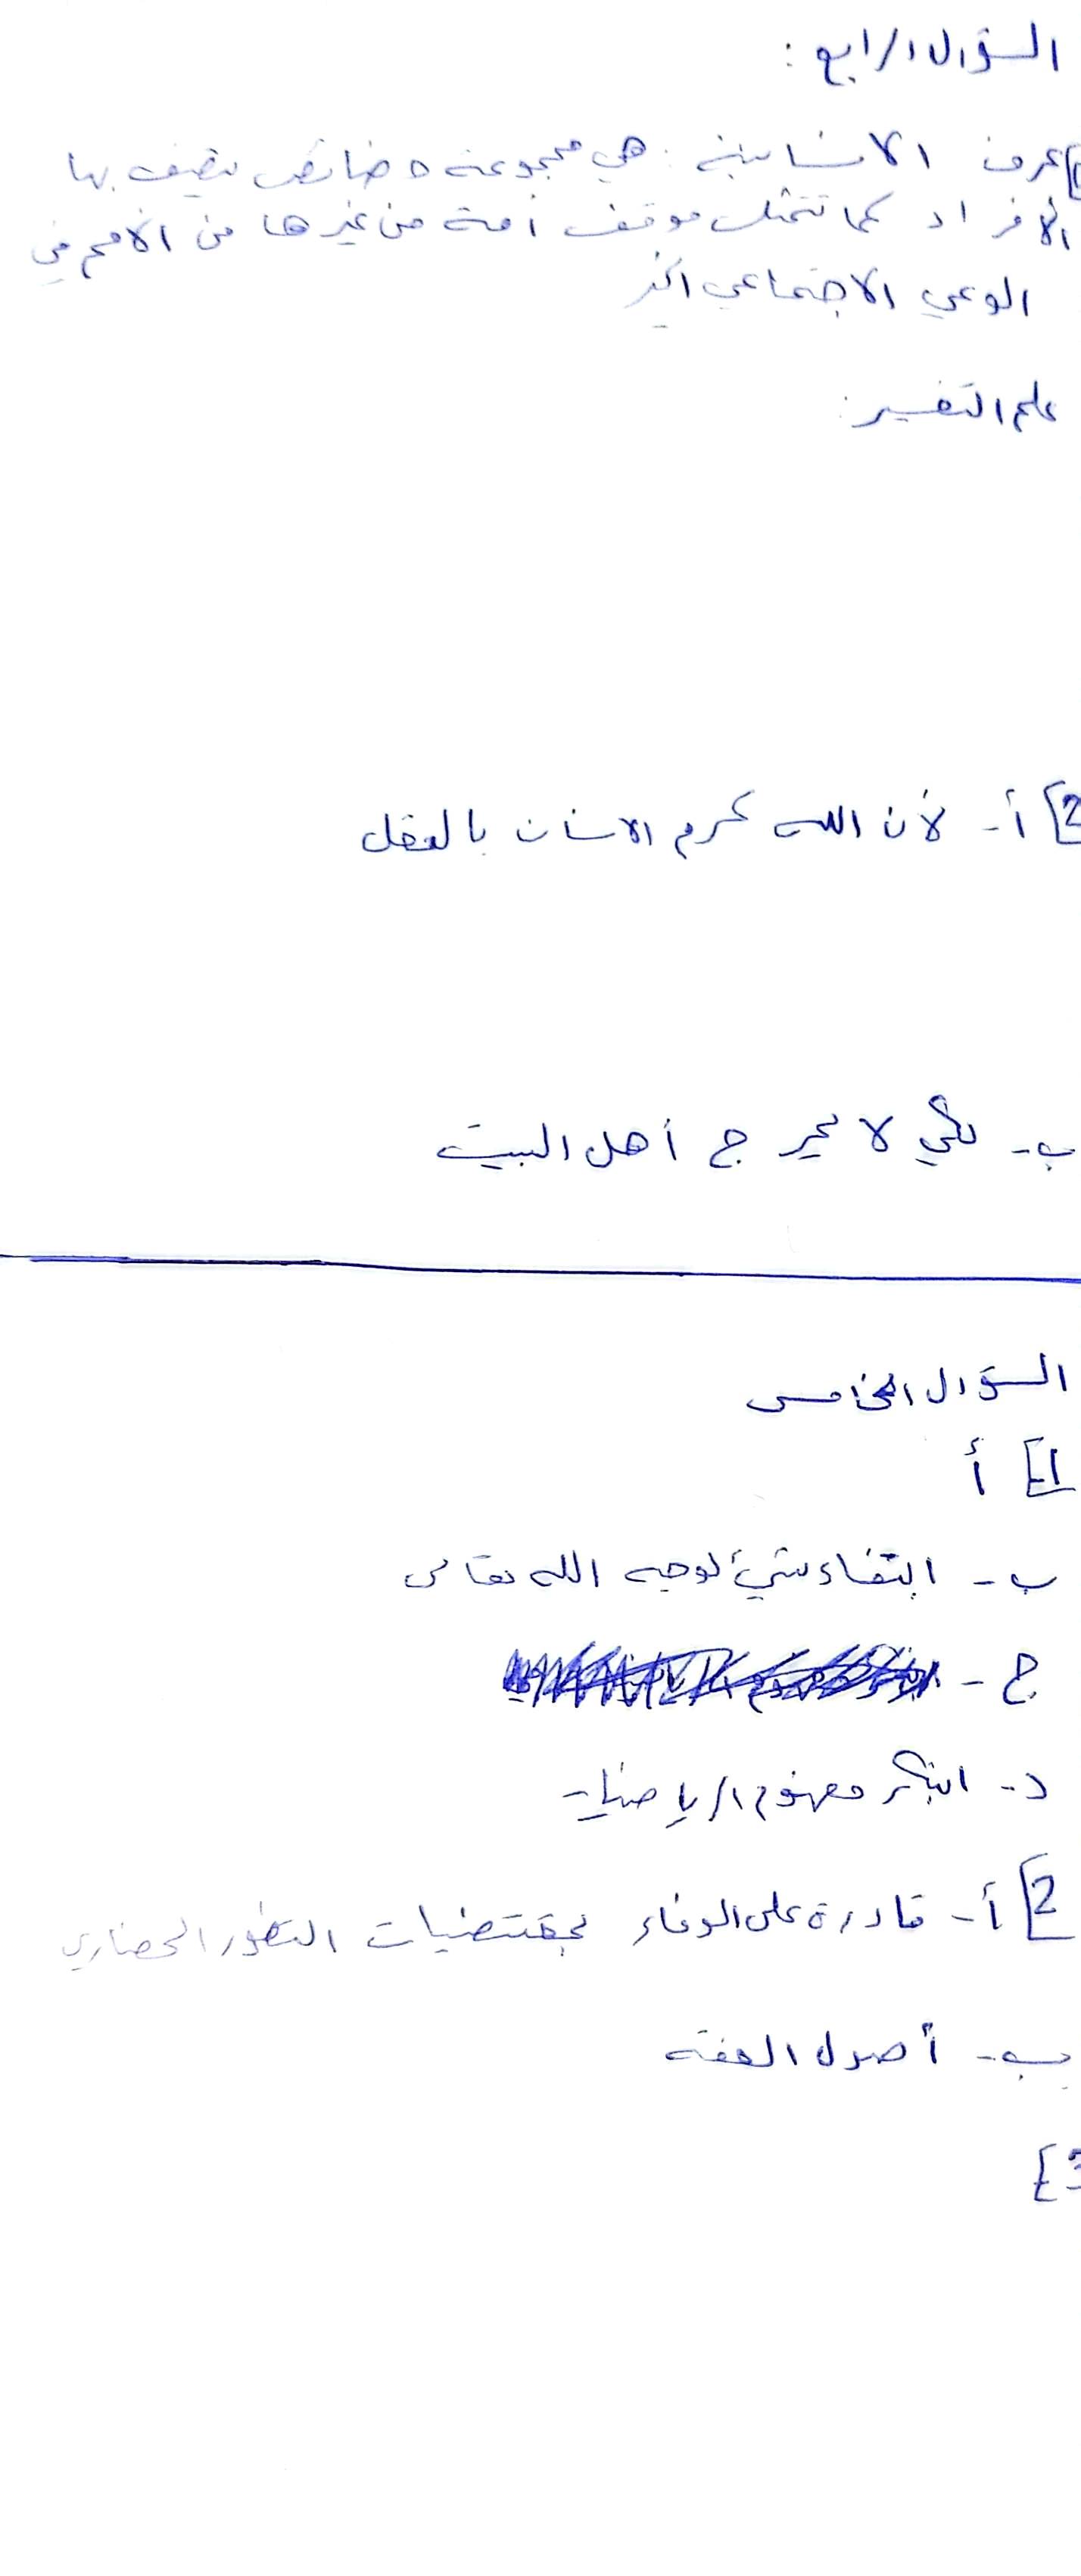 السؤال الرابع :
1] عرف الانسانية : هي مجموعة خصائص يتصف بها
الأفراد كما تتمثل موقف أمة من غيرها من الأمم في
الوعي الاجتماعي
علم التفسير :
2] أ- لأن الله كرم الانسان بالعقل
ب- لكي لا يحرج أهل البيت
السؤال الخامس
1] أ
ب- ابتغاء شيء لوجه الله تعالى
ج -
د- ابتكر مفهوم الرياضيات
2] أ- قادرة على الوفاء بمقتضيات التطور الحضاري
ب- أصول الفقه
3]